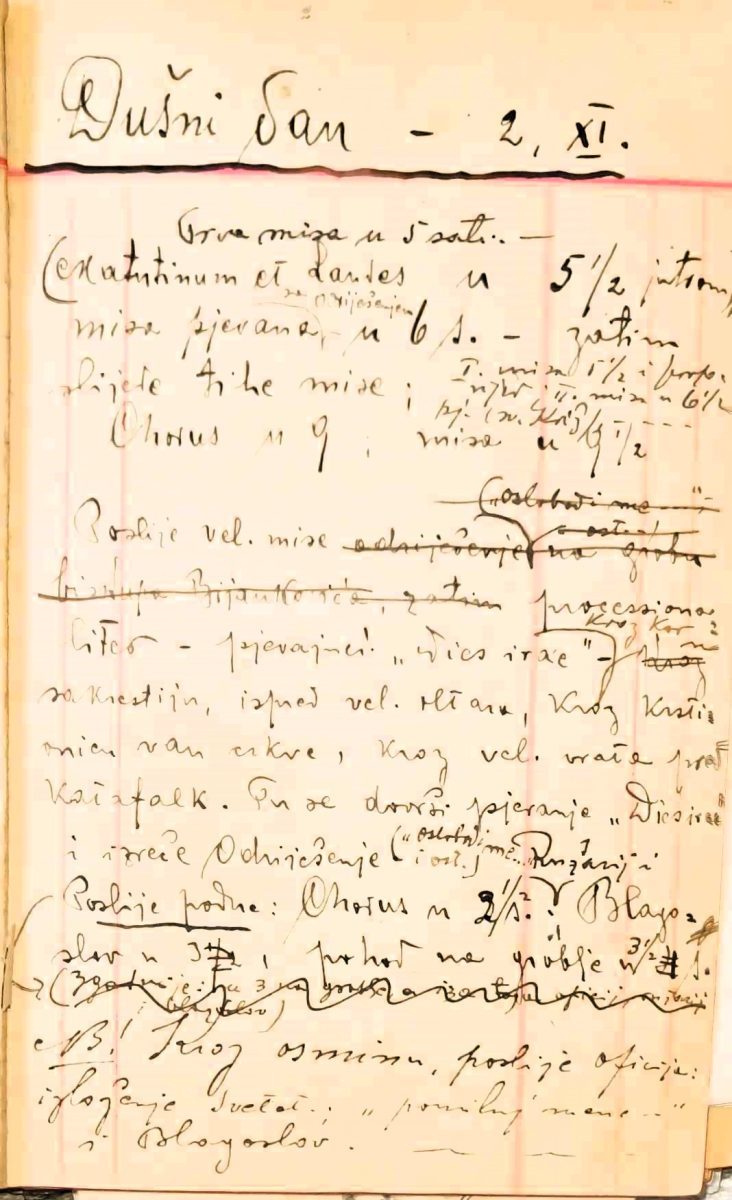 Dušni dan - 2. XI.
Prva misa u 5 sati. —
(Matutinum et Laudes u 5 1/2 jutrom,
sa odriješenjem
misa pjevana, - u 6 s. - zatim
slijede tihe mise; I. misa 5 1/2 i
II. misa u 6 1/2
pj. (sv. Križ) - - - -
Chorus u 9, misa u 9 1/2
("oslobodi me —";
i ost.)
Poslije vel. mise odriješenje na grobu
biskupa Bijankovića, zatim processiona-
kroz kor
liter - pjevajući „Dies irae" - kroz
sakrestiju, ispred vel. oltara, kroz krsti-
onicu van crkve, kroz vel. vrata pred
Katafalk. Tu se dovrši pjevanje „Dies irae"
i izreče Odriješenje („oslobodi me..."
i ost.) Ruzarij i
Poslije podne: Chorus u 2 1/2 s. Blago-
slov u 3, pohod na groblje u 3 1/2 s.
blagoslov)
NB! Kroz osminu, poslije oficija:
izloženje Svetot.; „pomiluj mene..."
i Blagoslov.